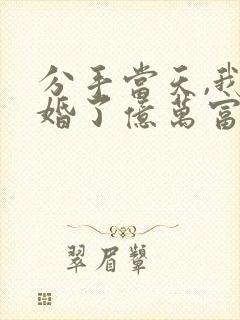 分手當天,我
婚了億萬富
翠眉顰